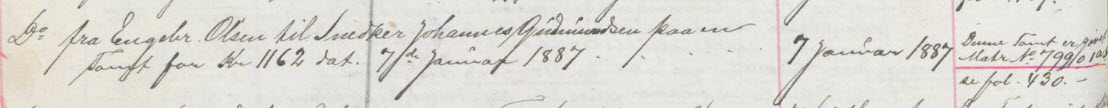 Do fra Engebr. Olsen til Snedker Johannes Gudmundsen paa en
Tomt for Kr 1162 dat. 7de Januar 1887.
7 Januar 1887
Denne Tomt er
Matr No 799
se fol. 430.-